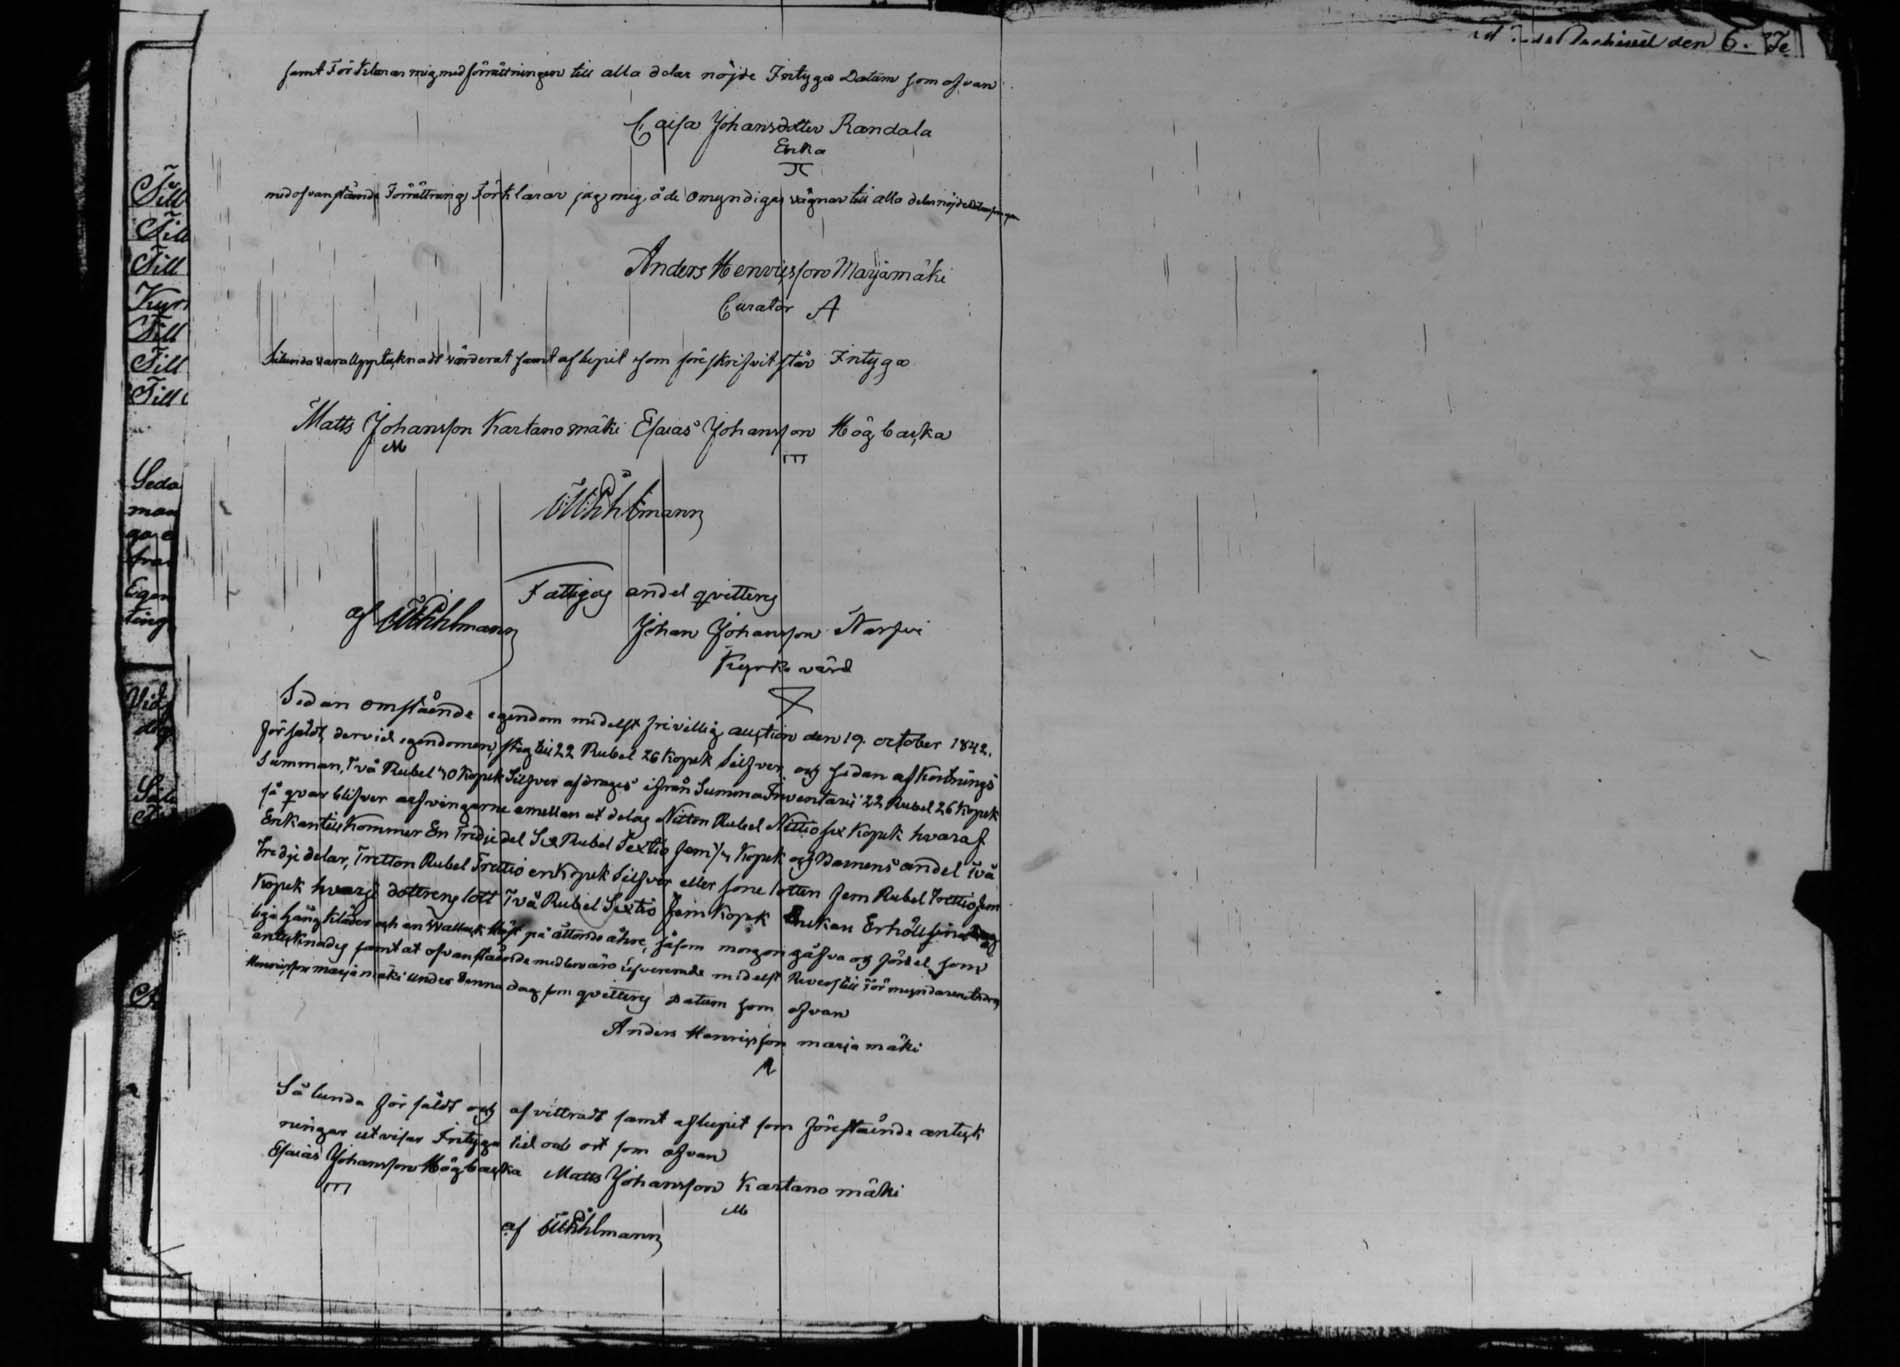 samt Förklarar mig med förrättningen till alla delar nöjde Intygar Datum som ofvan
Caisa Johansdotter Randala
Enka
med ofvanstående Förrättning Förklarar jag mig å de omyndigas vägnar till alla delar nöjd
Anders Henricsson Marjamäki
Curator A
Sålunda vara Upptecknadt värderat samt aflupit som föreskrifvit står Intygar
Matts Johansson Kartanomäki Esaias Johansson Högbacka
M
Påhlmann
Fattigas andel qvitteras
af Påhlmann
Johan Johansson Narfvi
Kyrko värd
Sedan omstående egendom medelst frivillig auction den 19. october 1842.
försåldt dervid egendomen steg till 22 Rubel 26 Kopek Silfver och sedan afkortnings
Summan, Två Rubel 30 Kopek Silfver afdrages ifrån Summa Inventarii 22 Rubel 26 Kopek
så qvar blifver arfvingarne emellan at delas Nitton Rubel Nittio sex Kopek hvaraf
Enkan till Kommer En Tridje del Sex Rubel Sextio fem Kopek och Barnens andel Två
Tredje delar, Tretton Rubel Trettio en Kopek Silfver eller sone lotten fem Rubel Trettio fem
Kopek hvarje dottrens lott Två Rubel Sextio fem Kopek Enkan Erhöll sina
liga Gångkläder och en Wallack Häst på åttonde åhre, såsom morgongåfva och fördel som
antecknades samt at ofvanstående medlen äro lefvererade medelst Revers till Förmyndaren Anders
Henricsson marjamäki under denna dag som qvitteras Datum som ofvan
Anders Henricsson marjamäki
A
Sålunda försåldt och afvittradt samt aflupit som förestående anteck
ningar utvisar Intyga tid och ort som ofvan
Esaias Johansson Högbacka Matts Johansson Kartanomäki
M
af Påhlmann
den 6. Te
Till
Till
Till
Kyr
Till
Till
Till
Seda
man
ga
Egen
ting
Vid
dag